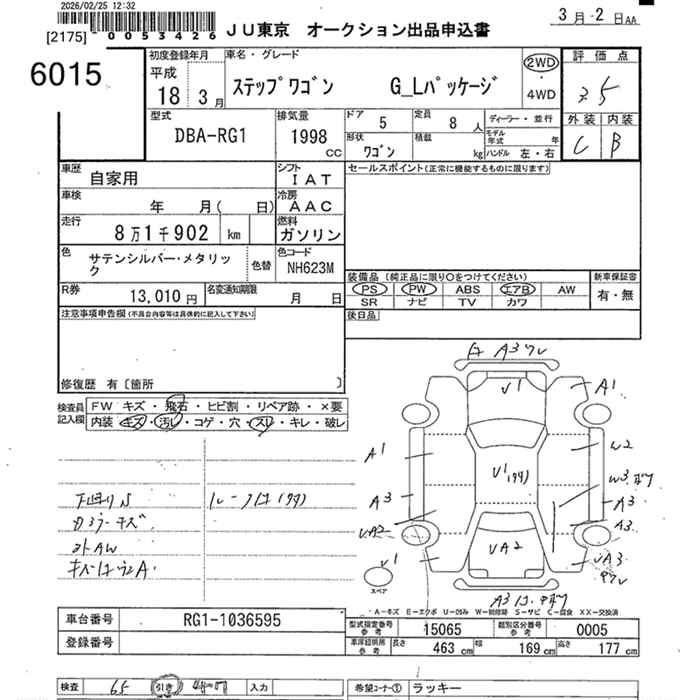 2026/02/25 12:32
[2175] 0053426 JU東京 オークション出品申込書 3月2日AA
6015
初度登録年月 平成 18 3月
車名・グレード ステップワゴン G_Lパッケージ
2WD ・ 4WD
評価点 3.5
外装 内装
C B
型式 DBA-RG1
排気量 1998 CC
ドア 5 定員 8人
形状 ワゴン 積載 kg
ディーラー・並行
モデル年式 年
ハンドル 左・右
車歴 自家用
シフト IAT
セールスポイント(正常に機能するものに限ります)
車検 年 月( 日)
冷房 AAC
走行 8万1千902 km
燃料 ガソリン
色 サテンシルバー・メタリック
色替
色コード NH623M
装備品(純正品に限り○をつけてください) 新車保証書
PS PW ABS エアB AW 有・無
SR ナビ TV カワ
R券 13,010円 名変通知期限 月 日
後日品
注意事項申告欄(不具合内容等は具体的に記入して下さい)
修復歴 有〔箇所 〕
検査員記入欄
FW キズ・飛石・ヒビ割・リペア跡・×要
内装 キズ・汚レ・コゲ・穴・スレ・キレ・破レ
V1
A1
A1
W2
A3
A3
A3
VA2
V1
VA2
スペア
A-キズ E-エクボ U-凹み W-補修跡 S-サビ C-腐食 XX-交換済
車台番号 RG1-1036595
登録番号
型式指定番号 参考 15065 類別区分番号 参考 0005
車庫証明用 参考 長さ 463 cm 幅 169 cm 高さ 177 cm
検査 65 引き 入力
希望コーナー① ラッキー